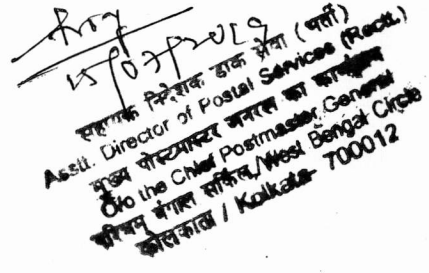 15/07/2019
सहायक निदेशक डाक सेवा (भर्ती)
Asstt. Director of Postal Services (Rectt.)
मुख्य पोस्टमास्टर जनरल का कार्यालय
O/o the Chief Postmaster General
पश्चिम बंगाल सर्किल/West Bengal Circle
कोलकाता / Kolkata- 700012